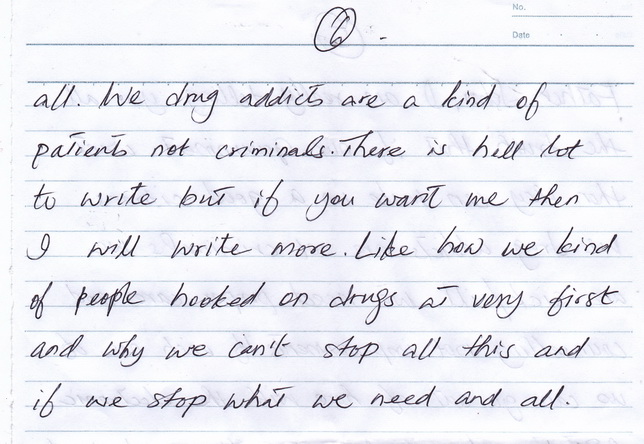 No.
6.
Date
all. We drug addicts are a kind of
patients not criminals. There is hell lot
to write but if you want me then
I will write more. Like how we kind
of people hooked on drugs at very first
and why we can't stop all this and
if we stop what we need and all.